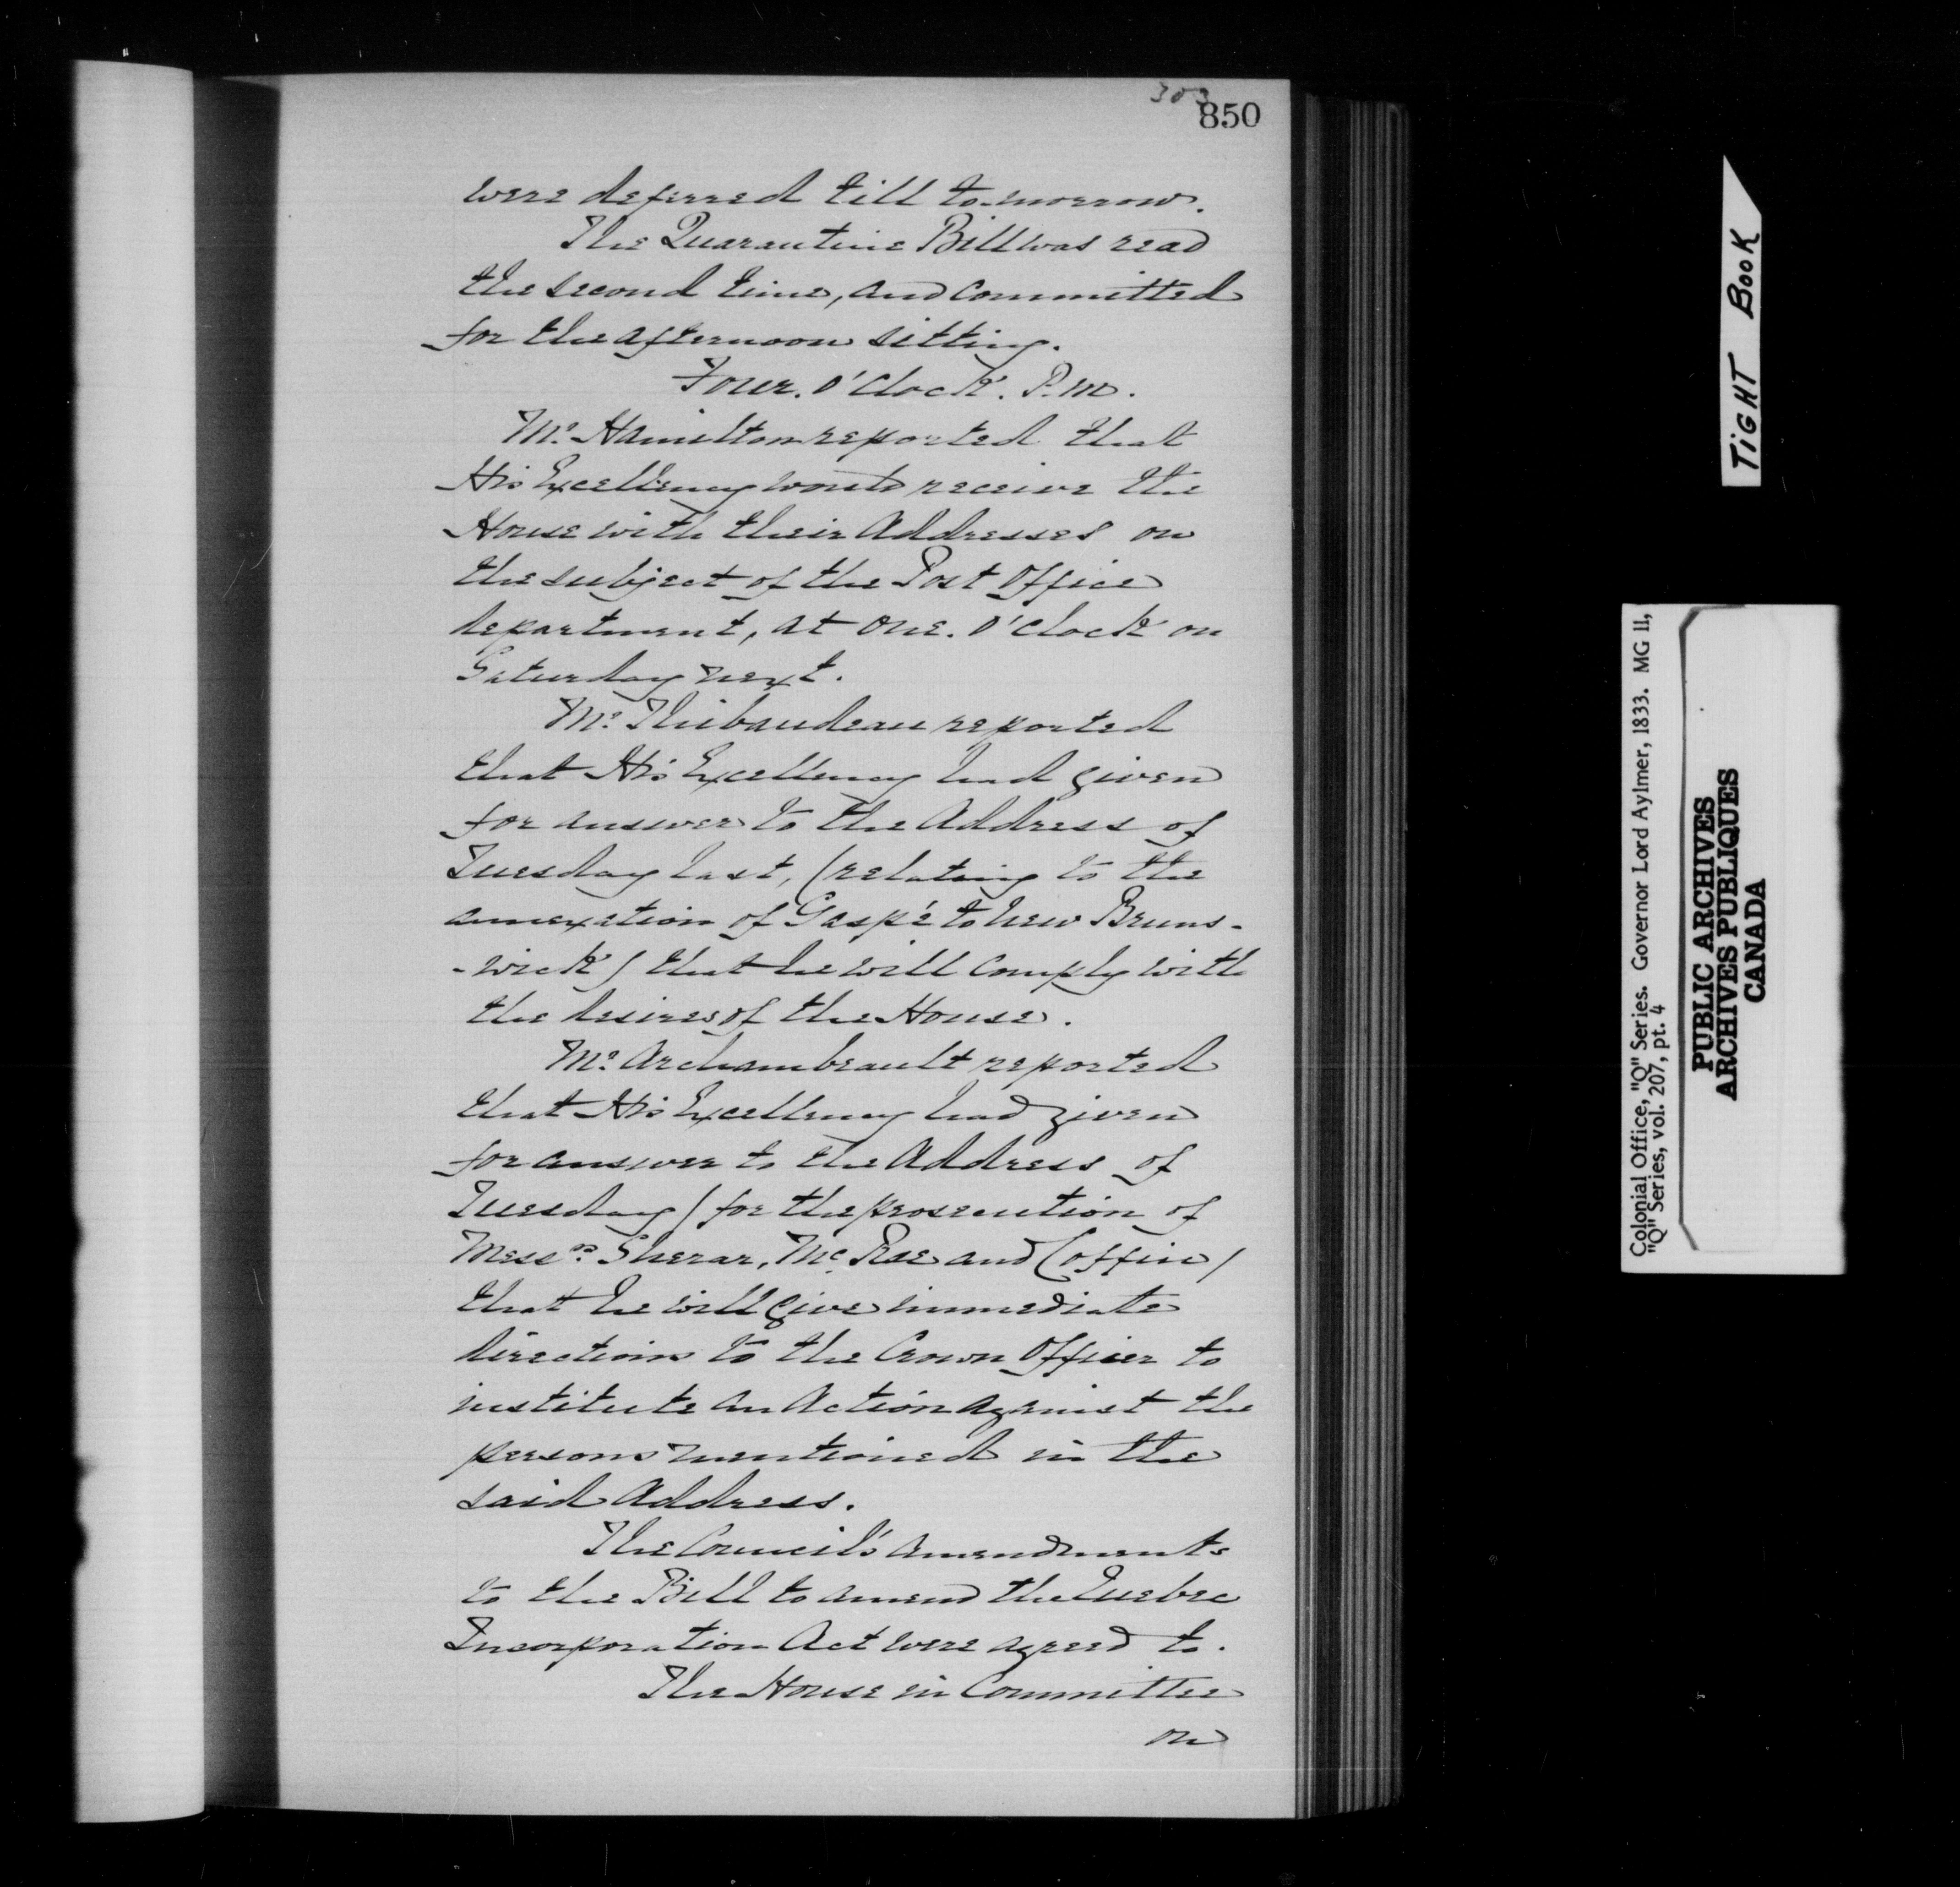 303
850
were deferred till to-morrow.
The Quarantine Bill was read
the second time, and committed
for the afternoon sitting.
Four. O'Clock. P.M.
Mr. Hamilton reported that
His Excellency would receive the
House with their Addresses on
the subject of the Post Office
department, at One. O'Clock on
Saturday next.
Mr. Thibaudeau reported
that His Excellency had given
for answer to the Address of
Tuesday last, (relating to the
annexation of Gaspé to New Bruns-
-wick) that he will comply with
the desires of the House.
Mr. Archambeault reported
that His Excellency had given
for answer to the Address of
Tuesday (for the prosecution of
Messrs. Sherar, McRae and Coffin)
that he will give immediate
directions to the Crown Officer to
institute an Action against the
persons mentioned in the
said Address.
The Council's amendments
to the Bill to amend the Quebec
Incorporation Act were agreed to.
The House in Committee
on
TIGHT BOOK
Colonial Office, "Q" Series. Governor Lord Aylmer, 1833. MG 11,
"Q" Series, vol. 207, pt. 4
PUBLIC ARCHIVES
ARCHIVES PUBLIQUES
CANADA